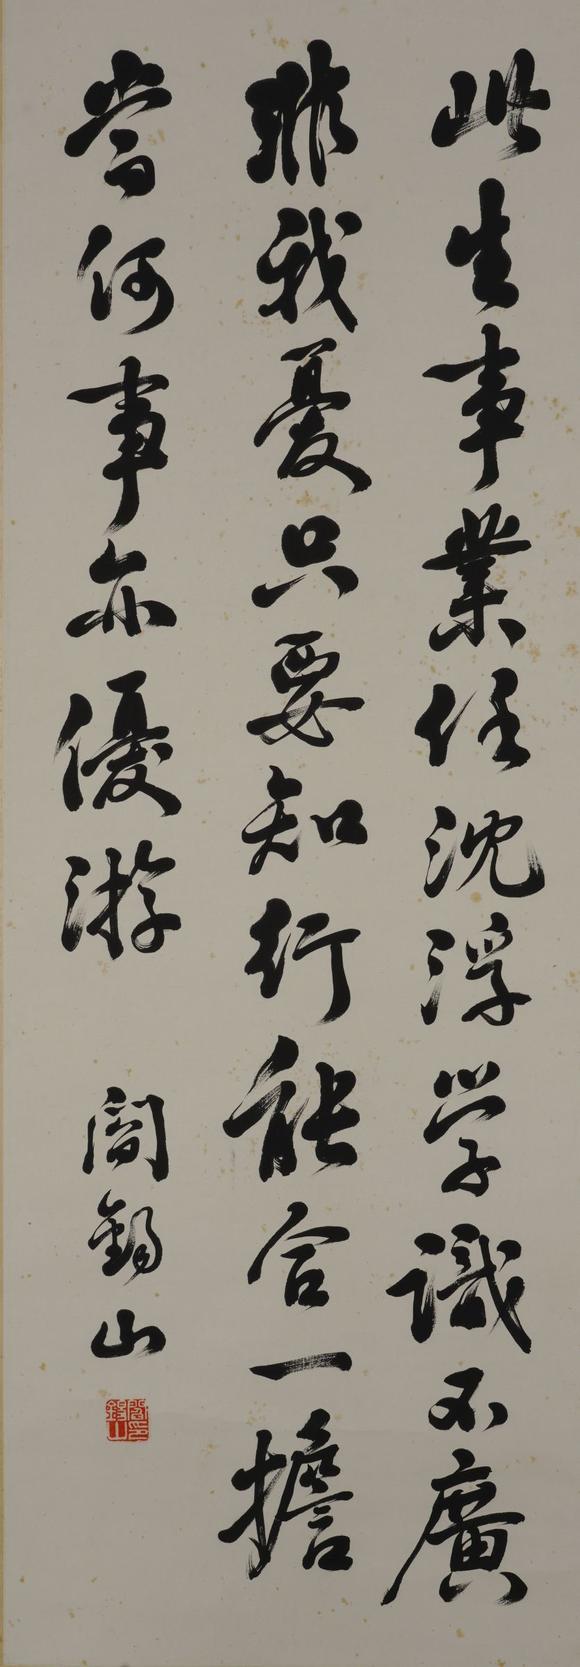 此生事業任沈浮学識不廣
非我憂只要知行能合一擔
當何事亦優游
閻錫山
閻錫山印